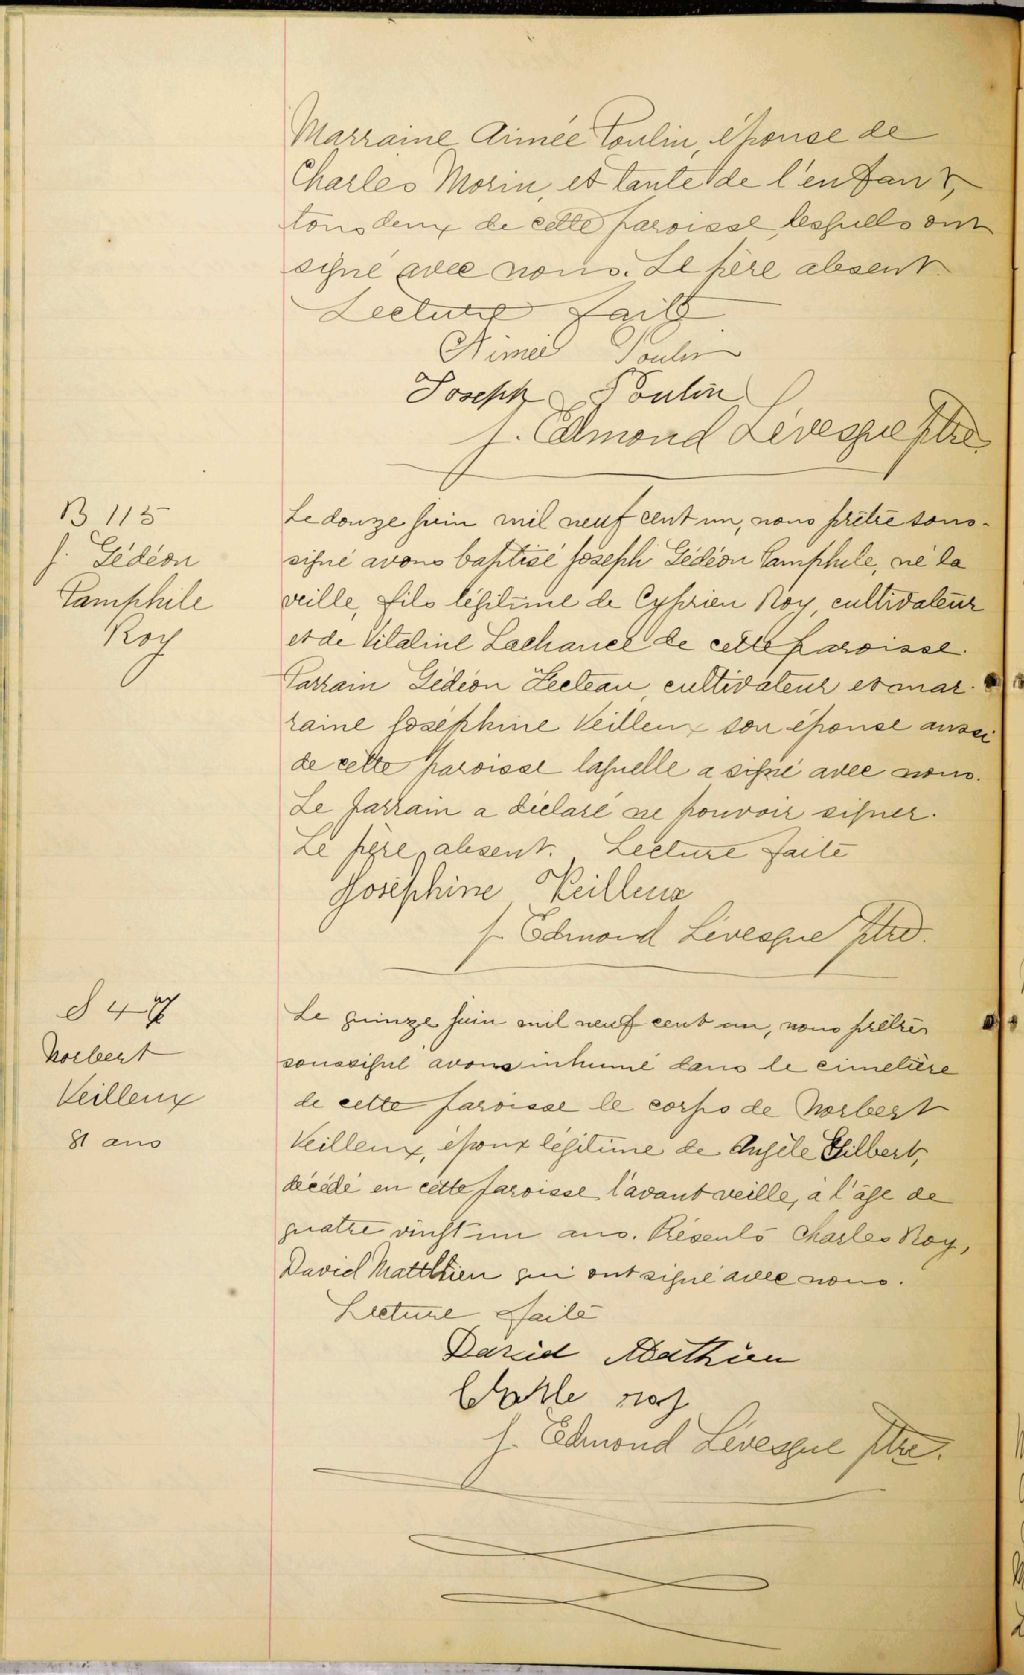 Marraine Aimée Poulin, épouse de
Charles Morin, et tante de l'enfant,
tous deux de cette paroisse, lesquels ont
signé avec nous. Le père absent
Lecture faite
Aimée Poulin
Joseph Poulin
J. Edmond Lévesque Ptre.
B 115
J. Gédéon
Pamphile
Roy
Le douze juin mil neuf cent un, nous prêtre sous-
signé avons baptisé Joseph Gédéon Pamphile, né la
veille, fils légitime de Cyprien Roy, cultivateur
et de Vitaline Lachance de cette paroisse.
Parrain Gédéon Fecteau, cultivateur et mar-
raine Joséphine Veilleux son épouse aussi
de cette paroisse laquelle a signé avec nous.
Le parrain a déclaré ne pouvoir signer.
Le père absent. Lecture faite
Joséphine Veilleux
J. Edmond Lévesque Ptre.
S 47
Norbert
Veilleux
81 ans
Le quinze juin mil neuf cent un, nous prêtre
soussigné avons inhumé dans le cimetière
de cette paroisse le corps de Norbert
Veilleux, époux légitime de Angèle Gilbert,
décédé en cette paroisse l'avant veille, à l'âge de
quatre vingt un ans. Présents Charles Roy,
David Matthieu qui ont signé avec nous.
Lecture faite
David Mathieu
roy
J. Edmond Lévesque Ptre.